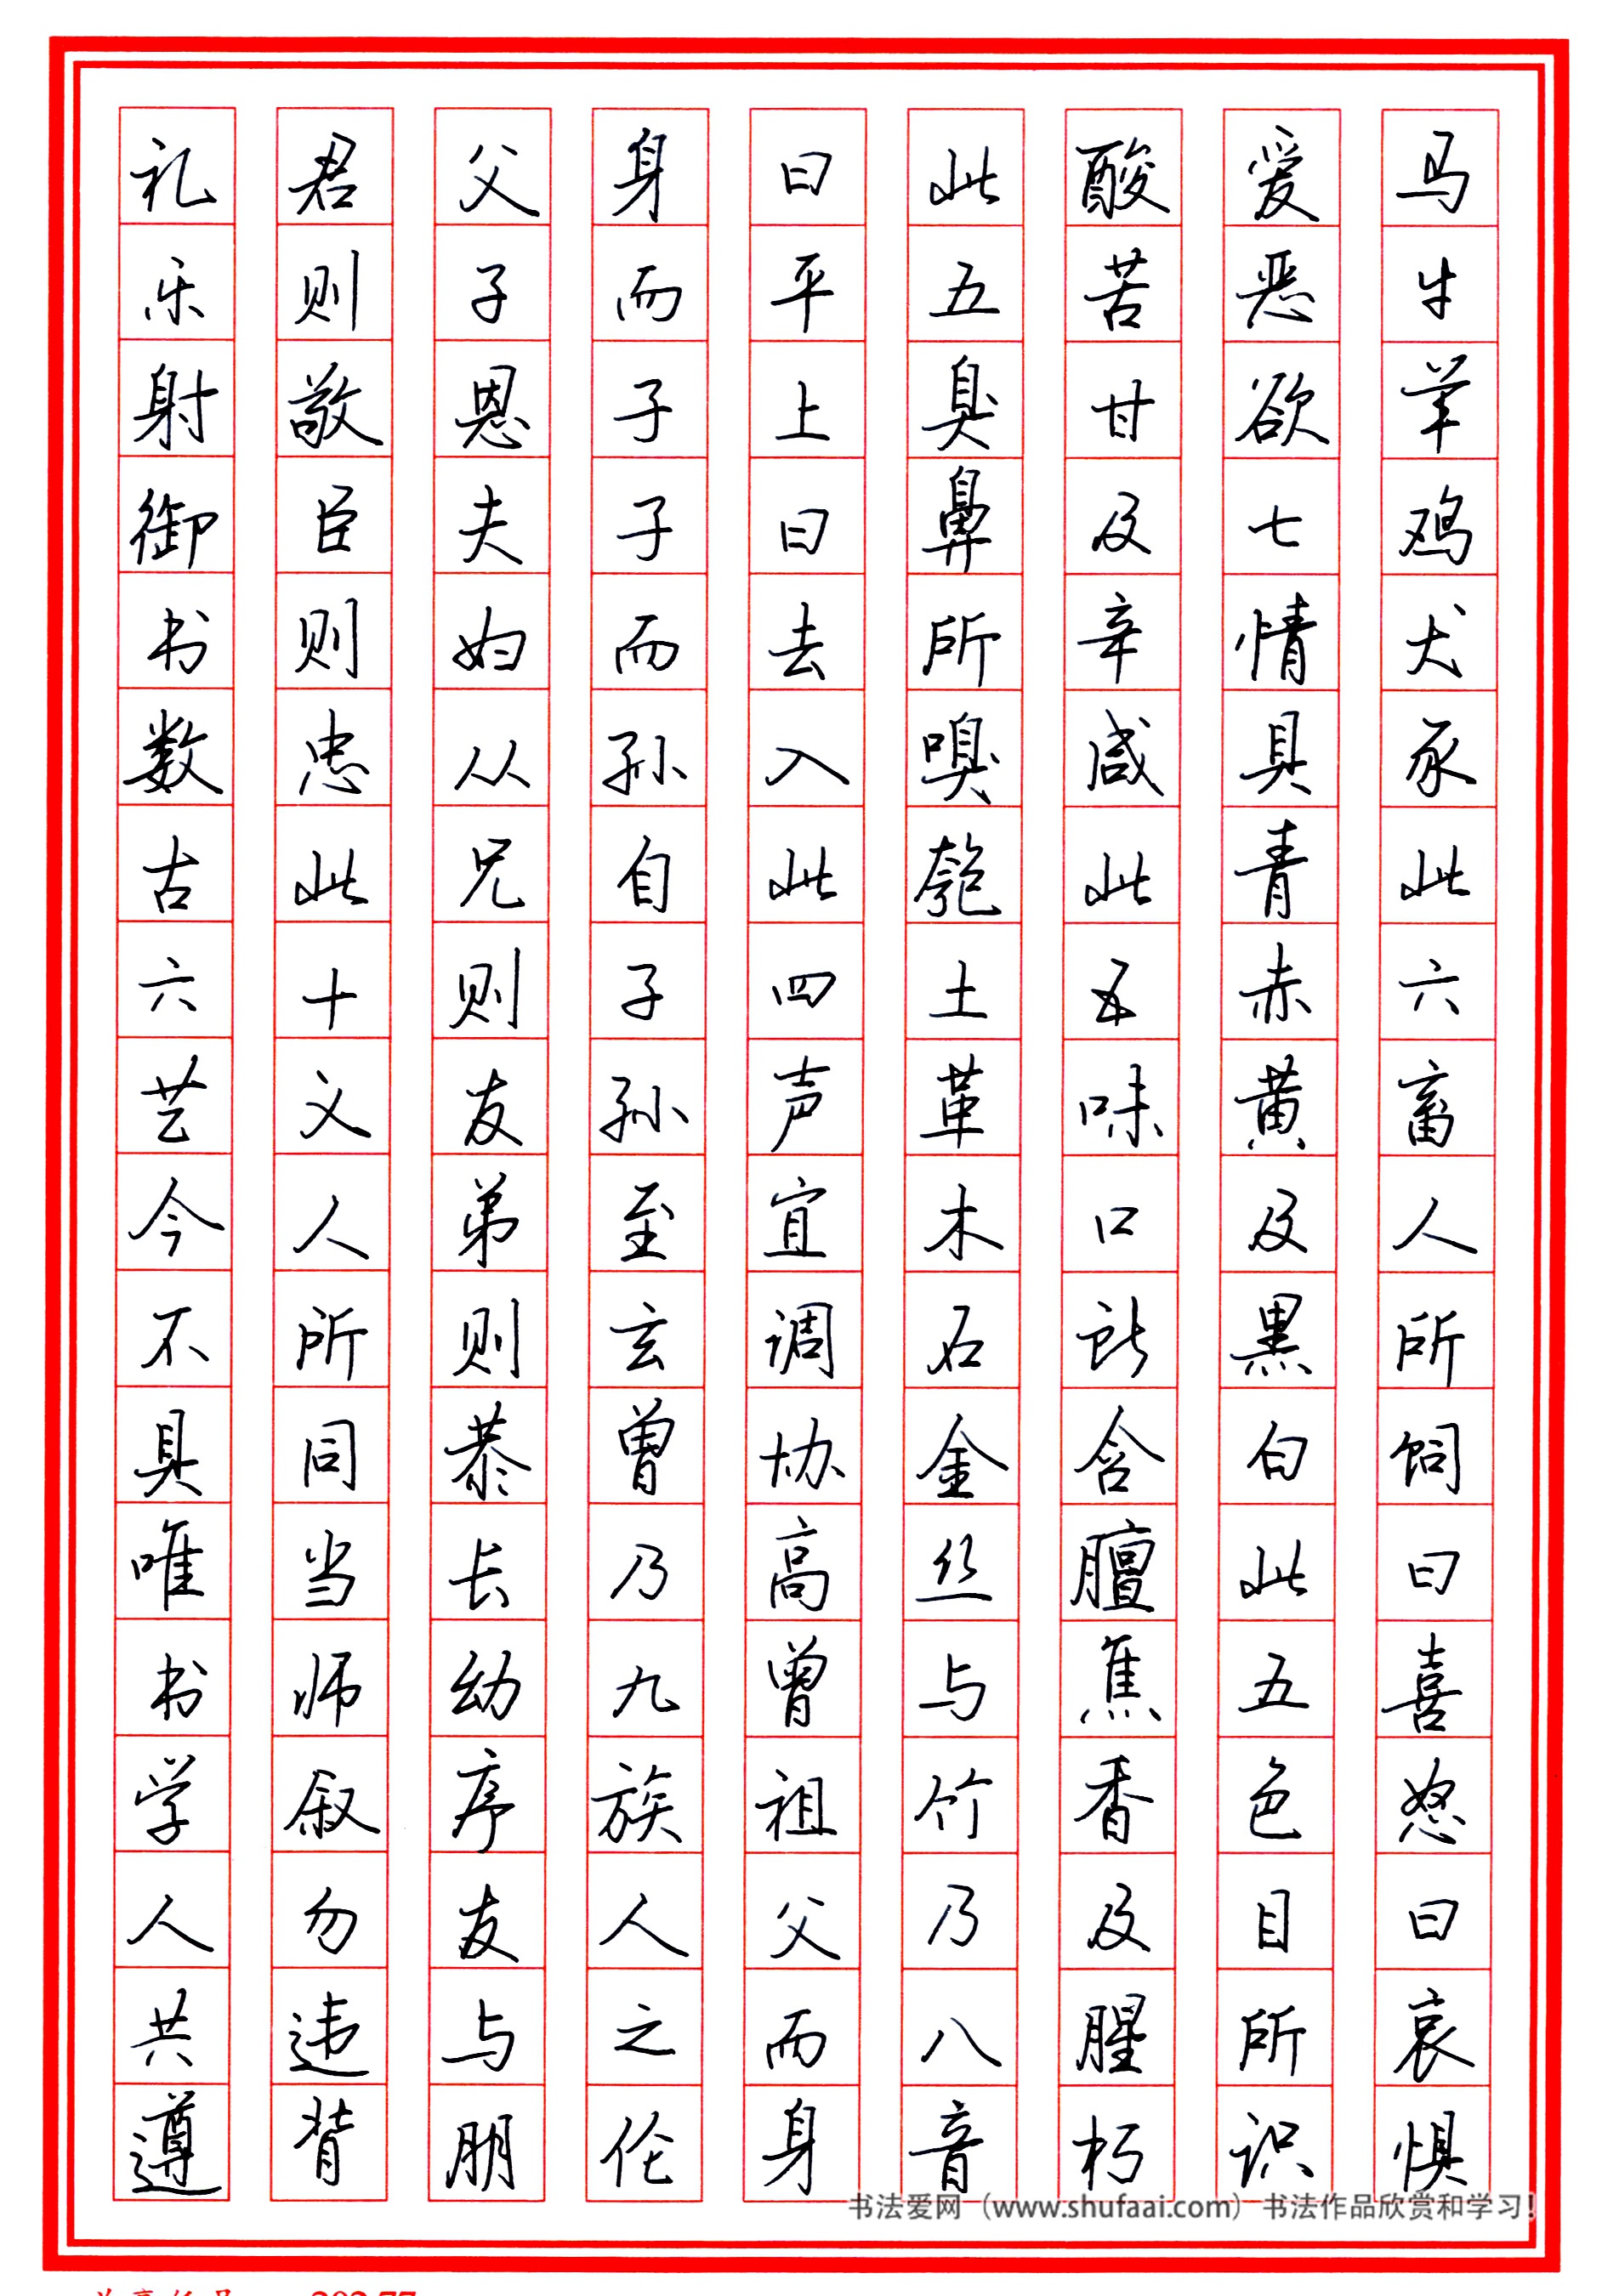 马牛羊鸡犬豕此六畜人所饲曰喜怒曰哀惧
爱恶欲七情具青赤黄及黑白此五色目所识
酸苦甘及辛咸此五味口所含膻焦香及腥朽
此五臭鼻所嗅匏土革木石金丝与竹乃八音
曰平上曰去入此四声宜调协高曾祖父而身
身而子子而孙自子孙至玄曾乃九族人之伦
父子恩夫妇从兄则友弟则恭长幼序友与朋
君则敬臣则忠此十义人所同当师叙勿违背
礼乐射御书数古六艺今不具唯书学人共遵
书法爱网（www.shufaai.com）书法作品欣赏和学习！